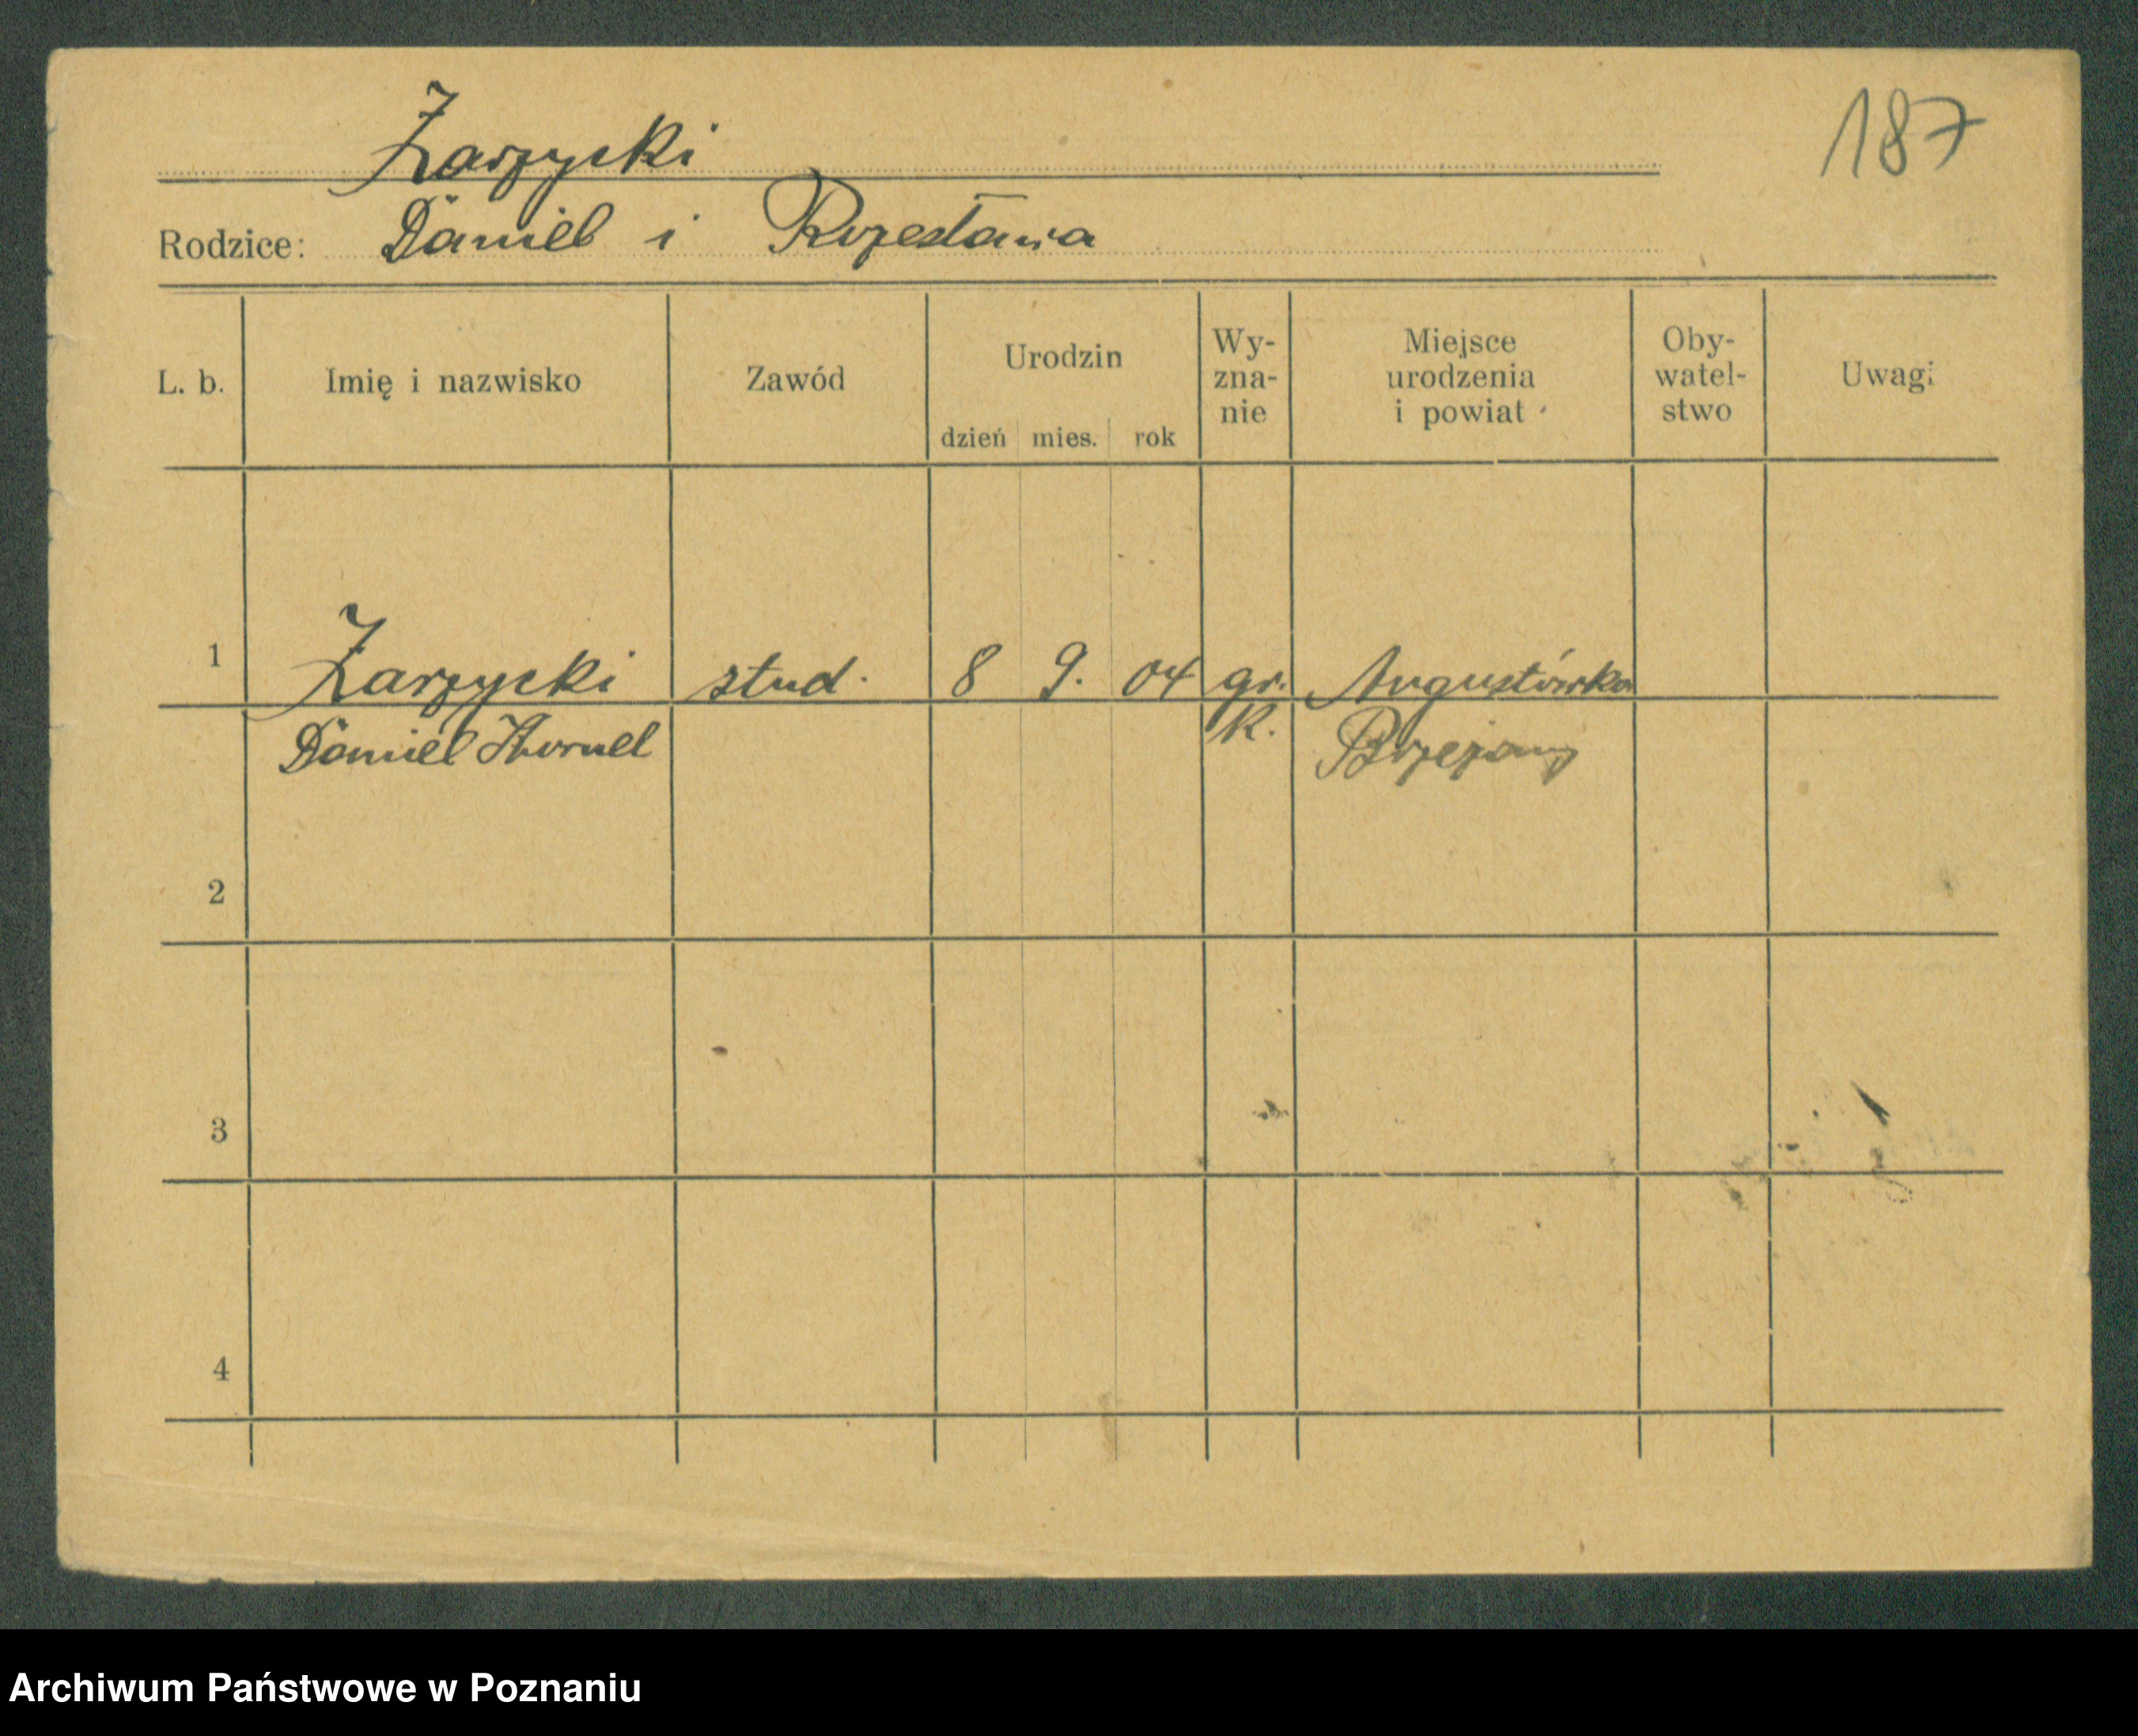 187
Zarzycki
Rodzice: Daniel i
L. b. Imię i nazwisko Zawód Urodzin Wy- zna- nie Miejsce urodzenia i powiat Oby- watel- stwo Uwagi
dzień mies. rok
1 Zarzycki stud. 8 9. 04 gr. Augustówka
Daniel Kornel k. Brzeżany
2
3
4
Archiwum Państwowe w Poznaniu